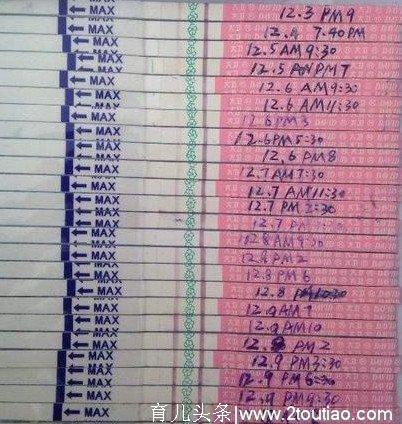 ← MAX 12.3 PM9
← MAX 12.4 7.40PM
← MAX 12.5 AM9:30
← MAX 12.5 PM7
← MAX 12.6 AM9:30
← MAX 12.6 AM11:30
← MAX 12.6 PM3
← MAX 12.6 PM5:30
← MAX 12.6 PM8
← MAX 12.7 AM7:30
← MAX 12.7 AM11:30
← MAX 12.7 PM 2:30
← MAX 12.7 PM
← MAX 12.8 AM9:30
← MAX 12.8 PM2
← MAX 12.8 PM6
← MAX 12.8
← MAX 12.9 AM7
← MAX 12.9 AM10
← MAX 12. PM2
← MAX 12.9 PM3:30
← MAX 12.9 PM6:30
← MAX 12.9 PM9:30
← MAX
育儿头条 www.2toutiao.com